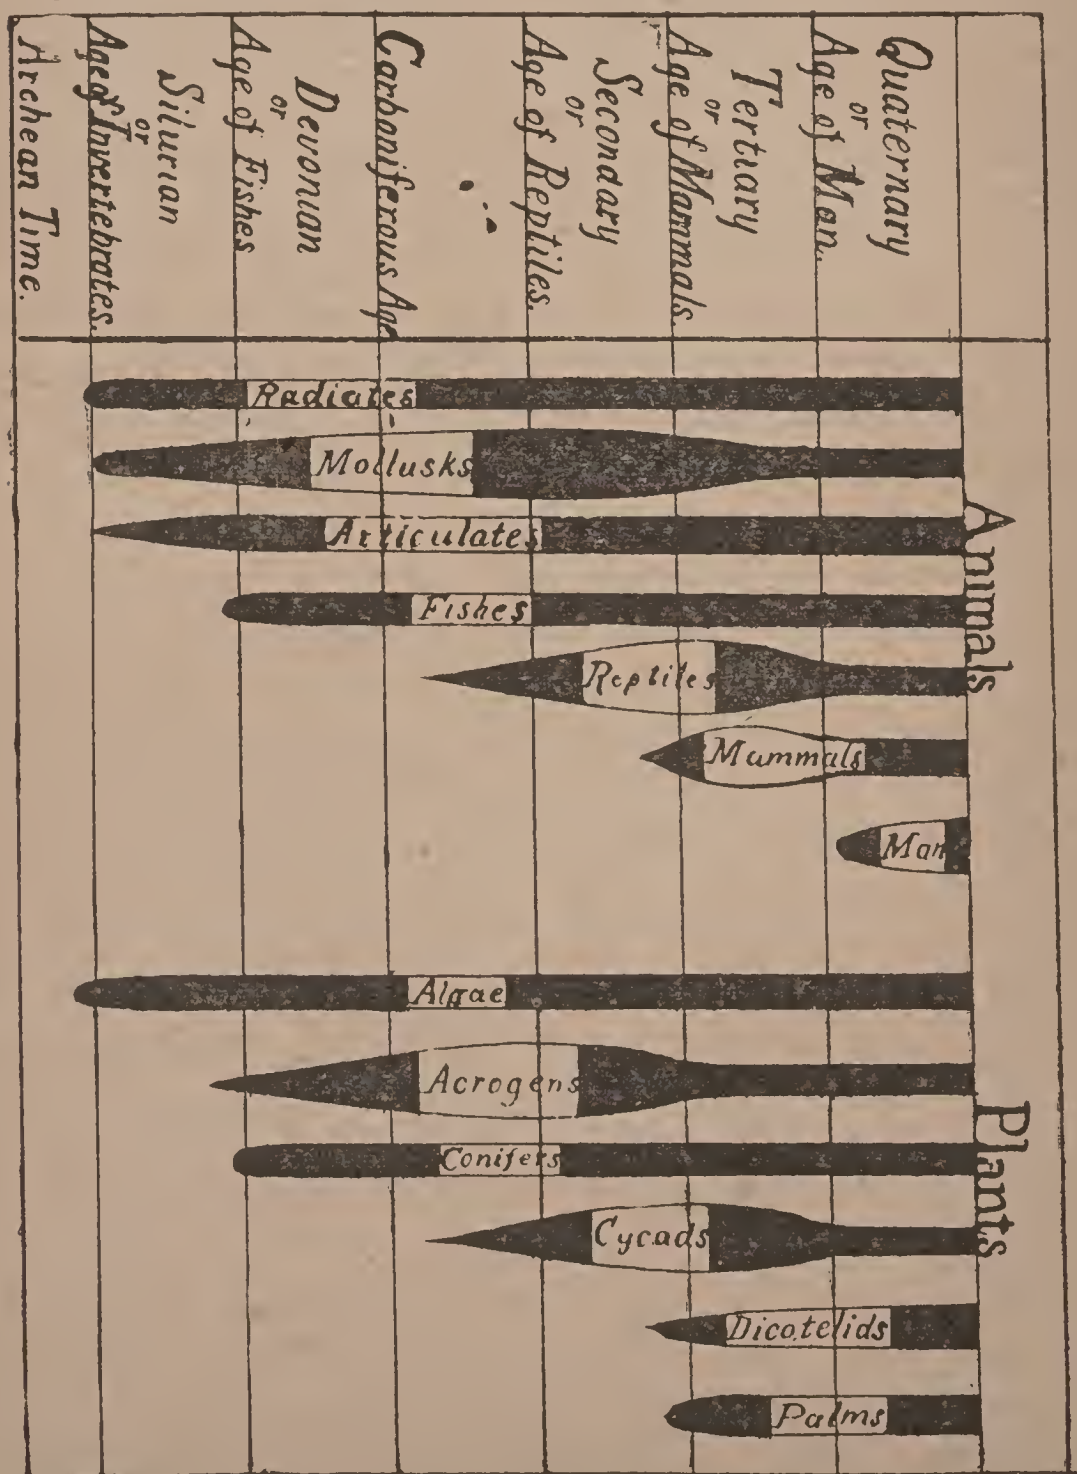 Quaternary
or
Age of Man.
Tertiary
or
Age of Mammals.
Secondary
or
Age of Reptiles.
Carboniferous Age
Devonian
or
Age of Fishes
Silurian
or
Age of Invertebrates.
Archean Time.
Animals
Radiates
Mollusks
Articulates
Fishes
Reptiles
Mammals
Man
Plants
Algae
Acrogens
Conifers
Cycads
Dicotelids
Palms